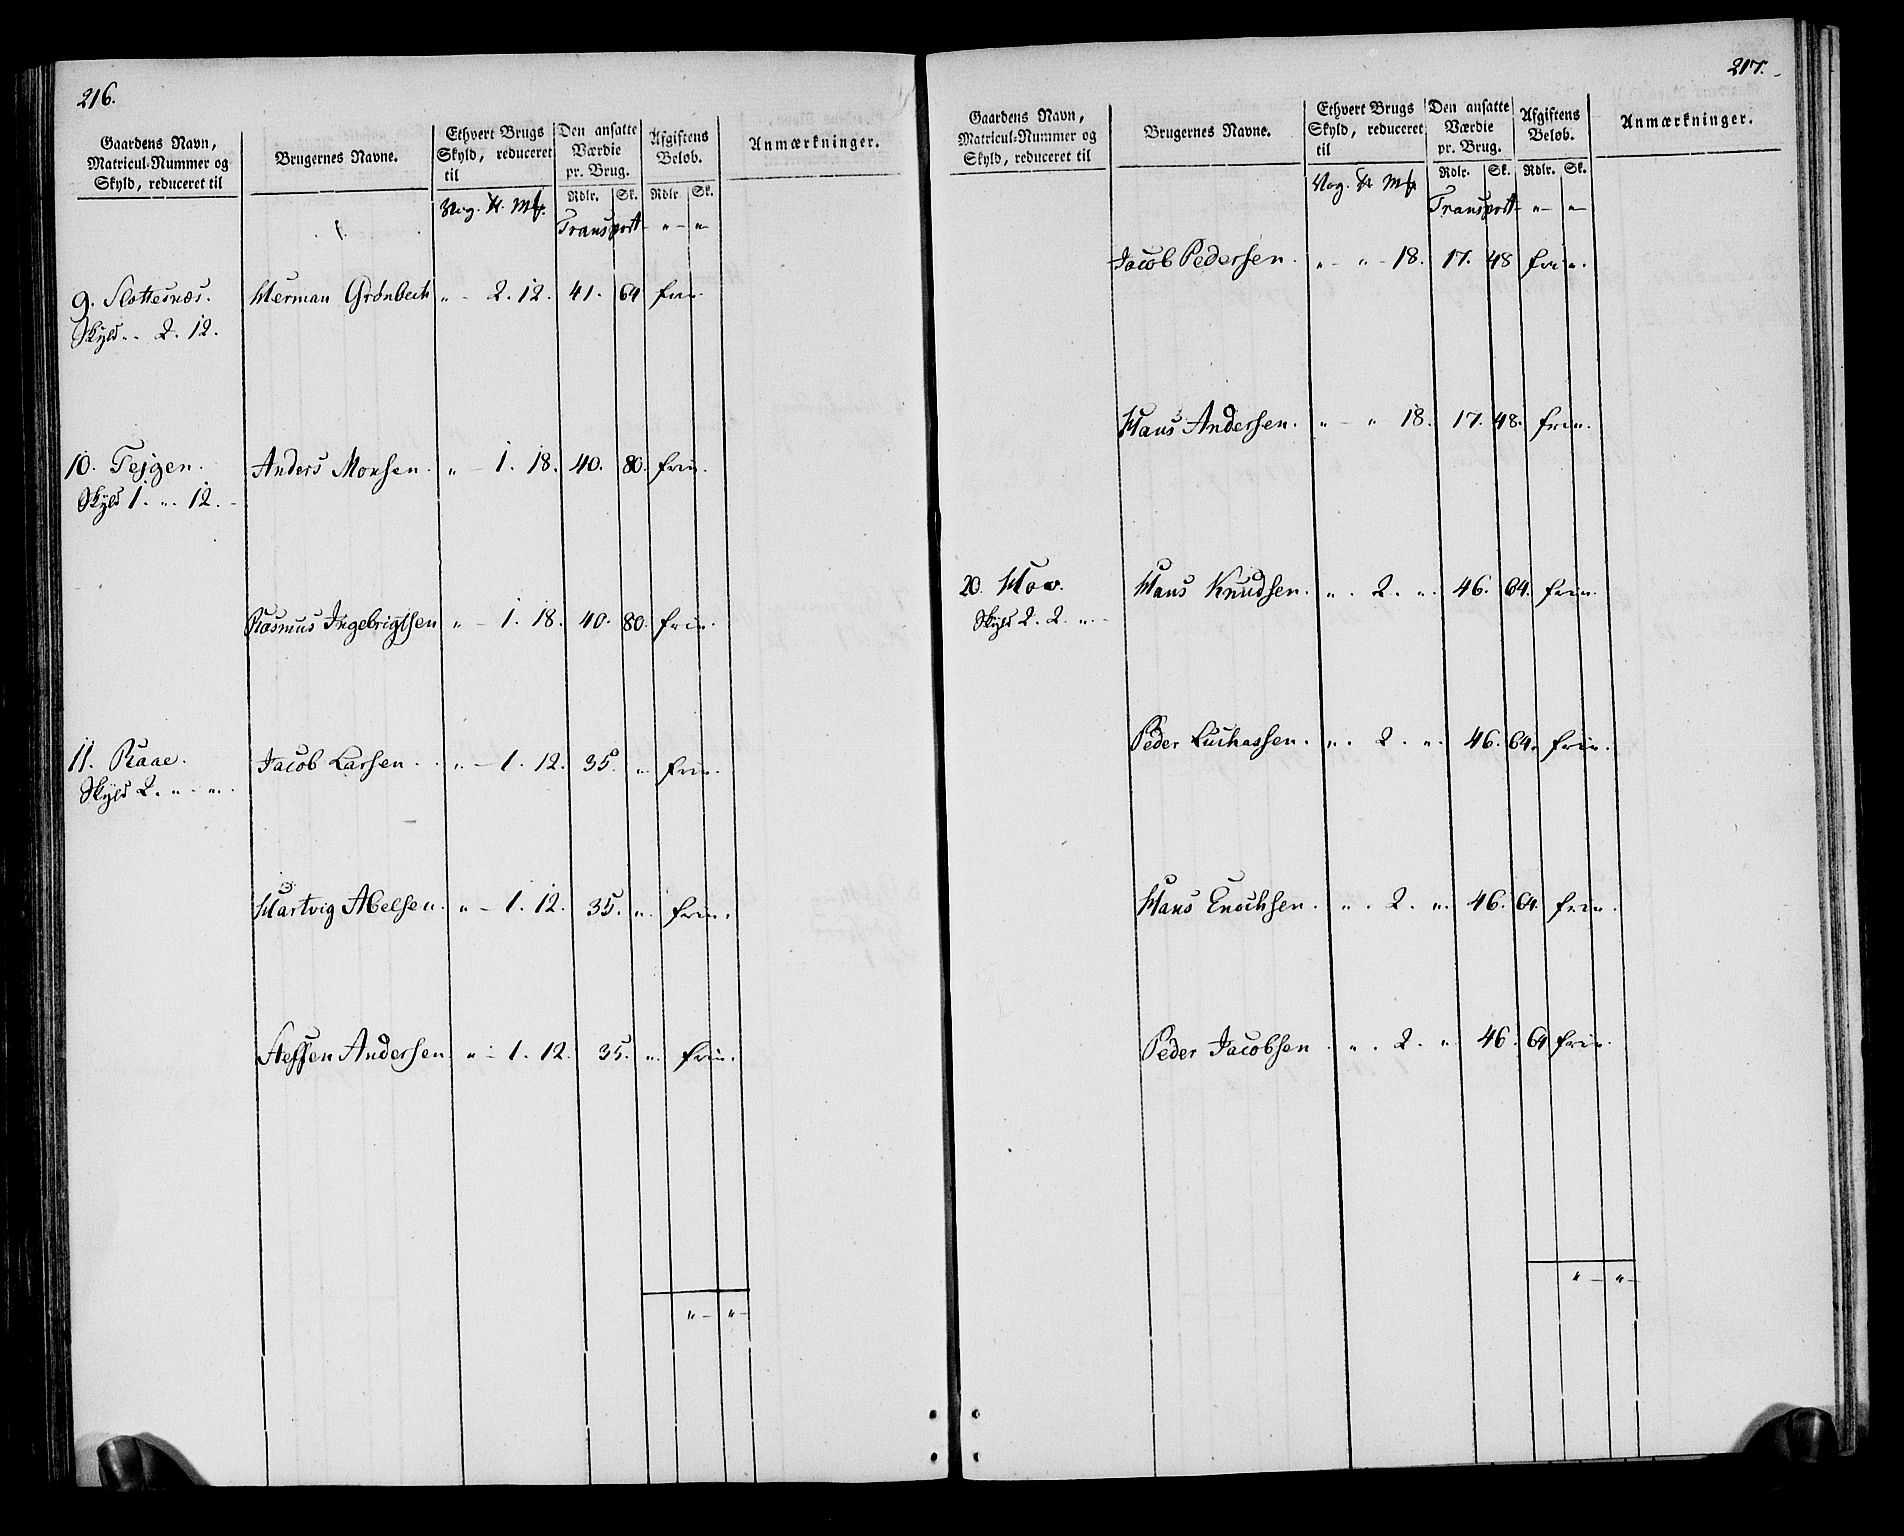 216.
Gaardens Navn, Matricul-Nummer og Skyld, reduceret til
Brugernes Navne.
Ethvert Brugs Skyld, reduceret til
Den ansatte Værdie pr. Brug.
Afgiftens Beløb.
Anmærkninger.
Rdlr. Sk. Rdlr Sk.
Vog. ℔. Mk.
Transport „ — „ —
9. Slottesnæs. Herman Grønbech „ - 2. 12. 41. 64 frie.
Skyld „ . 2. 12.
10. Tejgen. Anders Monsen. „ - 1. 18. 40. 80. frie.
Skyld 1. „ . 12.
Rasmus Ingebrigtsen „ - 1. 18. 40. 80. frie.
11. Raae. Jacob Larsen. „ - 1. 12. 35. „ frie.
Skyld 2. „ - „ .
Hartvig Abelsen. „ - 1. 12. 35. „ frie.
Steffen Andersen. „ - 1. 12. 35. „ frie.
„ — „ —
217.
Gaardens Navn, Matricul-Nummer og Skyld, reduceret til
Brugernes Navne.
Ethvert Brugs Skyld, reduceret til
Den ansatte Værdie pr. Brug.
Afgiftens Beløb.
Anmærkninger.
Rdlr. Sk. Rdlr. Sk.
Vog. ℔ Mk
Transport „ — „ —
Jacob Pedersen. „ - „ - 18. 17. 48 frie.
Hans Andersen. „ - „ 18. 17. 48. frie.
20. Hov. Hans Knudsen. „ . 2. „ . 46. 64. frie.
Skyld 2. 2. „ .
Peder Luchassen. „ . 2. „ . 46. 64. frie.
Hans Enochsen. „ . 2. „ . 46. 64. frie.
Peder Jacobsen „ . 2. „ 46. 64 frie.
„ — „ —